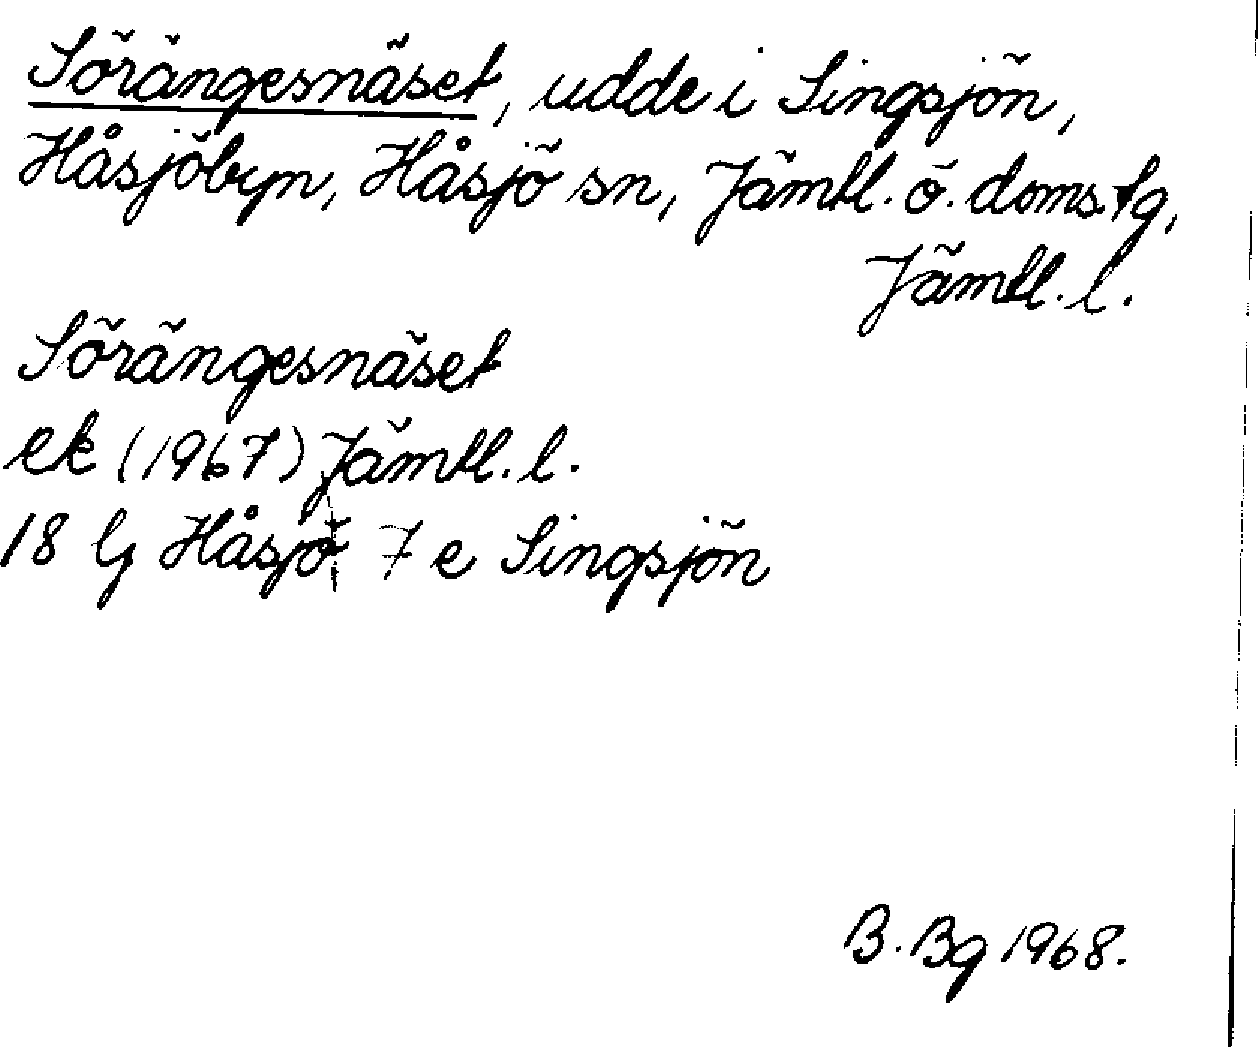 Sörängesnäset, udde i Singsjön,
Håsjöbyn, Håsjö sn, Jämtl. ö. doms.tg,
Jämtl. l.
Sörängesnäset
ek (1967) Jämtl. l.
18 G Håsjö 7 e Singsjön
B. Bg 1968.